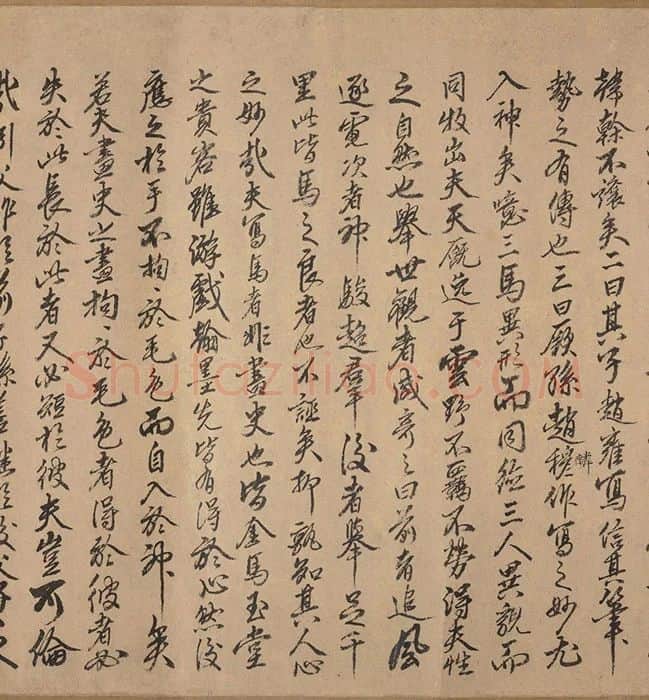 韓幹不讓矣二曰其子趙雍寫信其筆
勢之有傳也三曰厥孫趙穆麟作寫之妙尤
入神矣噫三馬異形而同繪三人異貌而
同牧出夫天厩逸于雲野不羈不勞得夫性
之自然也舉世觀者咸奇之曰前者追風
逐電次者神駿超群後者舉足千
里此皆馬之良者也不誣矣抑孰知其人心
之妙哉夫寫馬者非畫史也皆金馬玉堂
之貴客雖游戲翰墨先皆有得於心然後
應之於手不拘々於毛色而自入於神矣
若夫畫史之畫拘々於毛色者得於彼者必
失於此長於此者又必短於彼夫豈可倫
shufaziliao.com